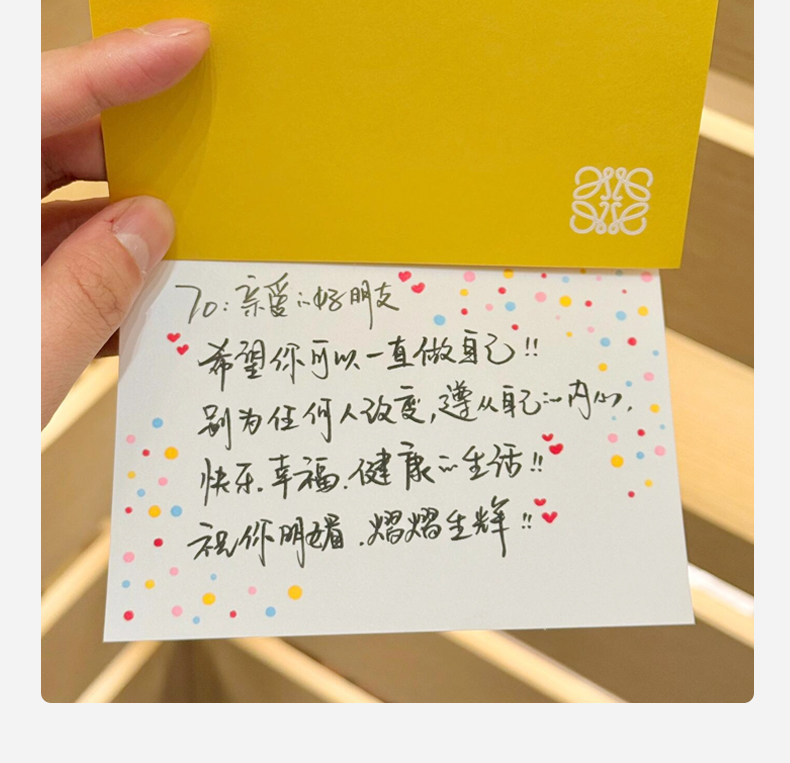 To:亲爱的好朋友
希望你可以一直做自己!!
别为任何人改变,遵从自己的内心,
快乐.幸福.健康的生活!!
祝你明媚.熠熠生辉!!